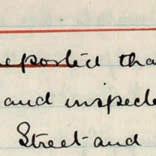 reported tha
and inspecte
Street and